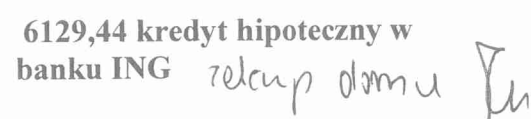 6129,44 kredyt hipoteczny w
banku ING zakup domu